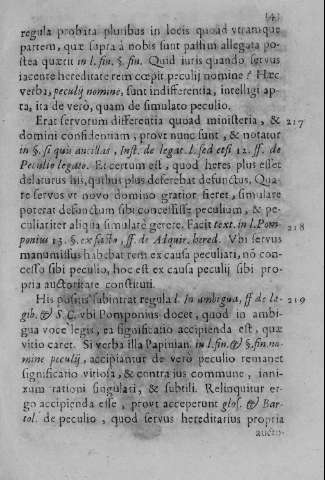 regula probata pluribus in locis quoad vtramque
partem, quæ supra à nobis sunt passim allegata po-
stea quærit in l. fin. §. fin. Quid iuris quando seruus
iacente hereditate rem cœpit peculij nomine? Hæc
verba, peculij nomine, sunt indifferentia, intelligi ap-
ta, ita de verò, quam de simulato peculio.
Erat seruorum differentia quoad ministeria, & 217
domini confidentiam, prout nunc sunt, & notatur
in §. si quis ancillas, Inst. de legat. l. sed etsi 12. ff. de
Peculio legato. Et certum est, quod heres plus esset
delaturus his, quibus plus deferebat defunctus. Qua-
re seruos vt nouo domino gratior fieret, simulare
poterat defunctum sibi concessisse peculium, & pe-
culiariter aliqua simulare gerere. Facit text. in l. Pom- 218
ponius 13. §. ex facto, ff. de Alquir. hered. Vbi seruus
manumissus habebat rem ex causa peculiari, nō con-
cesso sibi peculio, hoc est ex causa peculij sibi pro-
pria auctoritate constituti.
His positis subintrat regula l. In ambigua, ff de le- 219
gib. & S. C. vbi Pomponius docet, quod in ambi-
gua voce legis, ea significatio accipienda est, quæ
vitio caret. Si verba illa Papinian. in l. fin. & §. fin. no-
mine peculij, accipiantur de vero peculio remanet
significatio vitiosa, & contra ius commune, inni-
xum rationi singulari, & subtili. Relinquitur er-
go accipienda esse, provt acceperunt glos. & Bar-
tol. de peculio, quod seruus hereditarius propria
aucto-